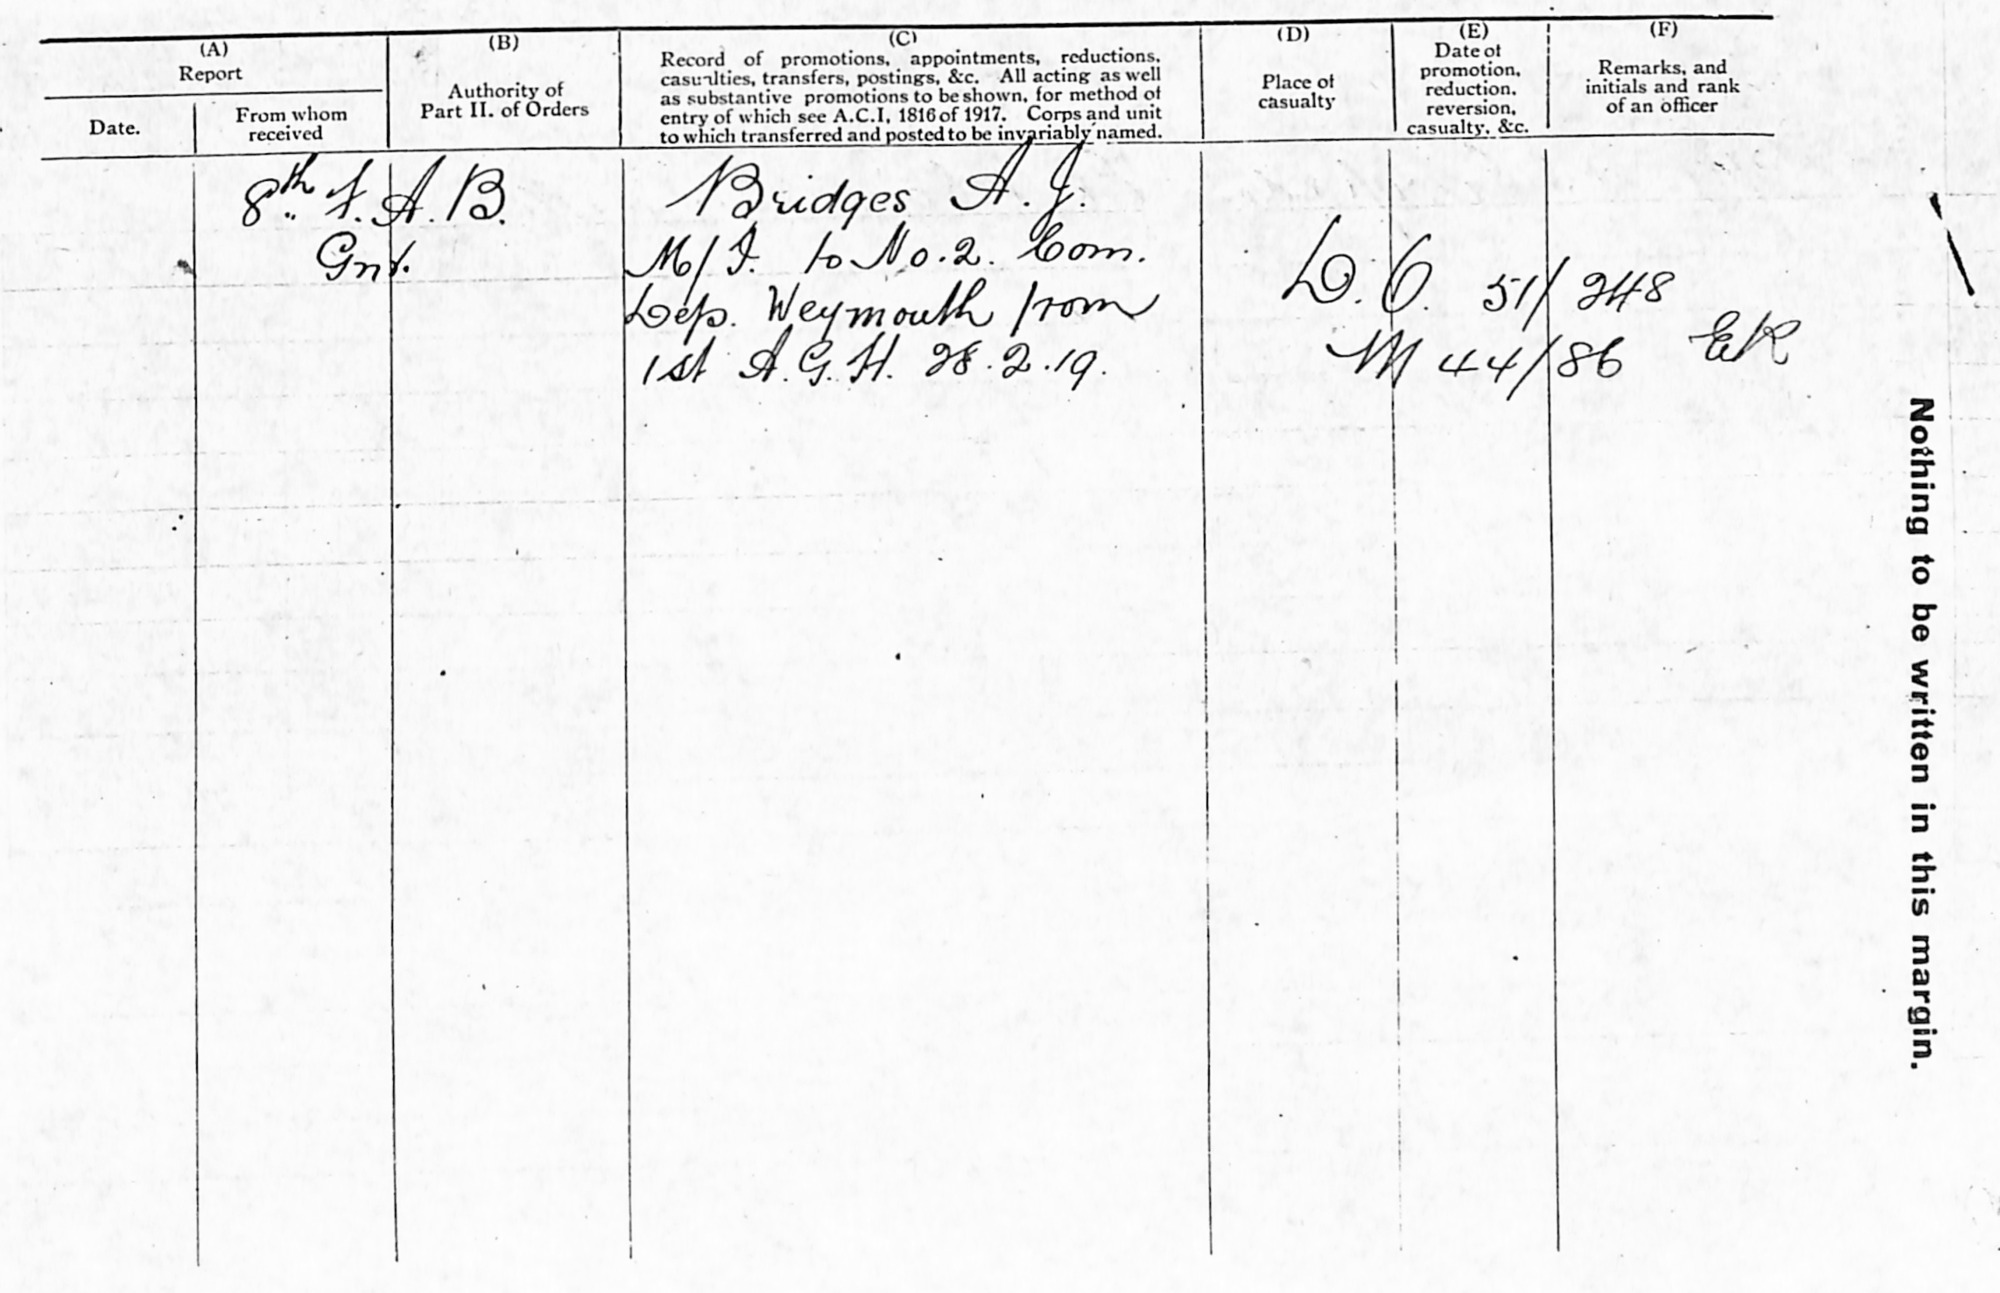 (A)
Report
Date.
From whom
received
(B)
Authority of
Part II. of Orders
(C)
Record of promotions, appointments, reductions,
casualties, transfers, postings, &c. All acting as well
as substantive promotions to be shown, for method of
entry of which see A.C.I. 1816 of 1917. Corps and unit
to which transferred and posted to be invariably named.
(D)
Place of
casualty
(E)
Date of
promotion,
reduction,
reversion,
casualty, &c.
(F)
Remarks, and
initials and rank
of an officer
8th F.A.B.
Gnr.
Bridges A.J.
M/I. to No.2. Com.
Dep. Weymouth from
1st A.G.H. 28.2.19.
D.O. 51/248
M 44/86 ER
Nothing to be written in this margin.